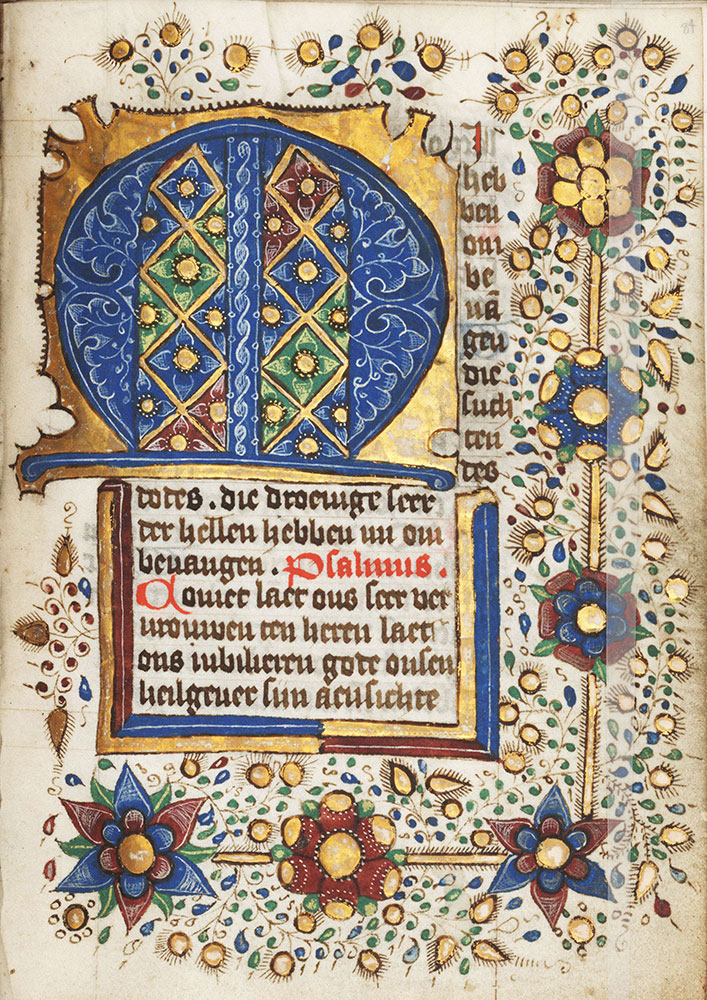 84
MI
heb
ben
om
be
uā
gen
die
such
ten
des
dodes . die droeuige seer
der hellen hebben mi om
beuangen . Psalmus .
Comet laet ons seer ver
urouwen den heren laet
ons iubilieren gode onsen
heilgeuer sijn aensichte